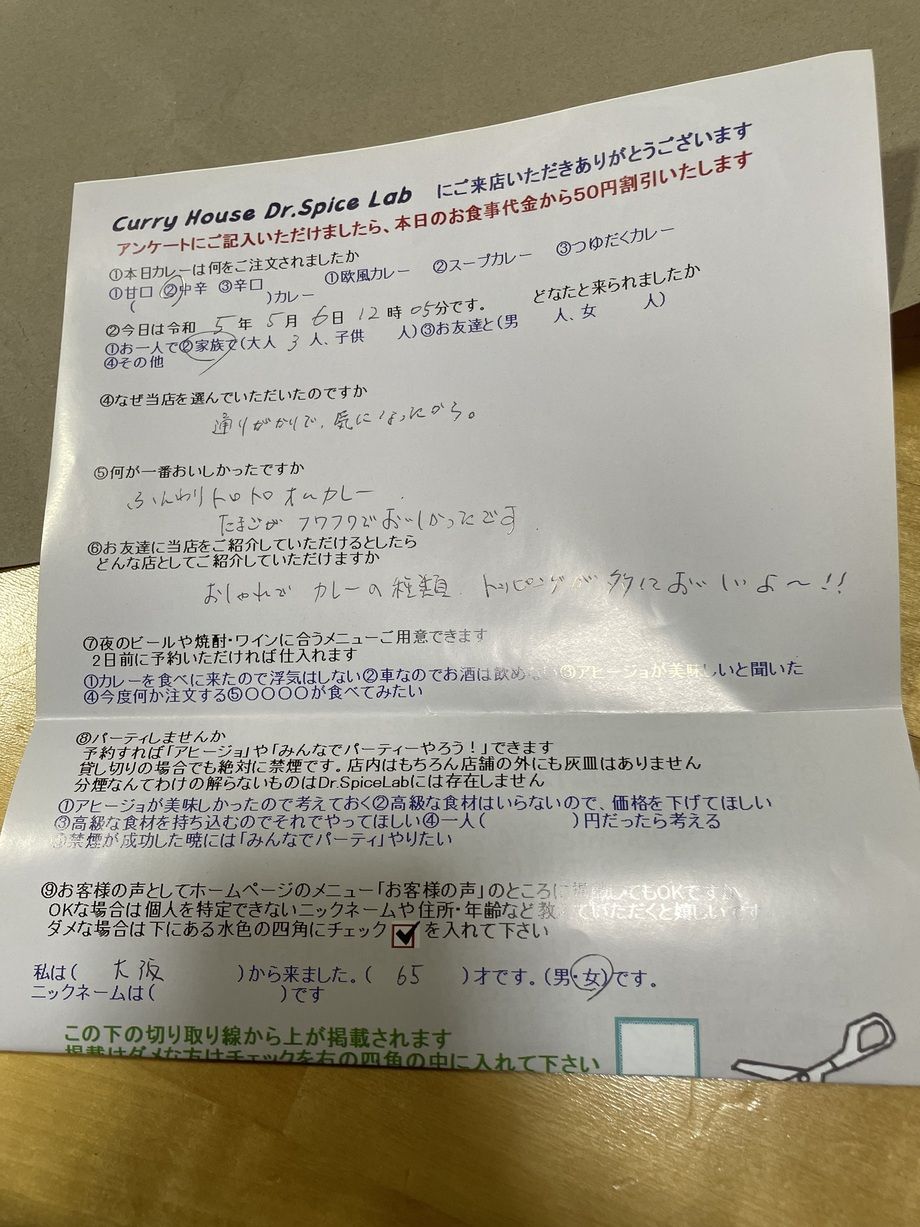 Curry House Dr.Spice Lab にご来店いただきありがとうございます
アンケートにご記入いただけましたら、本日のお食事代金から50円割引いたします
①本日カレーは何をご注文されましたか ①欧風カレー ②スープカレー ③つゆだくカレー
①甘口 ②中辛 ③辛口
( )カレー
②今日は令和 5 年 5 月 6 日 12 時 05 分です。 どなたと来られましたか
①お一人で②家族で(大人 3 人、子供 人)③お友達と(男 人、女 人)
④その他
④なぜ当店を選んでいただいたのですか
通りがかりで、気になったから。
⑤何が一番おいしかったですか
ふんわりトロトロオムカレー
たまごがフワフワでおいしかったです
⑥お友達に当店をご紹介していただけるとしたら
どんな店としてご紹介していただけますか
おしゃれで カレーの種類、トッピングが多くておいしいよ〜!!
⑦夜のビールや焼酎・ワインに合うメニューご用意できます
2日前に予約いただければ仕入れます
①カレーを食べに来たので浮気はしない②車なのでお酒は飲めない③アヒージョが美味しいと聞いた
④今度何か注文する⑤〇〇〇〇が食べてみたい
⑧パーティしませんか
予約すれば「アヒージョ」や「みんなでパーティーやろう!」できます
貸し切りの場合でも絶対に禁煙です。店内はもちろん店舗の外にも灰皿はありません
分煙なんてわけの解らないものはDr.SpiceLabには存在しません
①アヒージョが美味しかったので考えておく②高級な食材はいらないので、価格を下げてほしい
③高級な食材を持ち込むのでそれでやってほしい④一人( )円だったら考える
⑤禁煙が成功した暁には「みんなでパーティ」やりたい
⑨お客様の声としてホームページのメニュー「お客様の声」のところに掲載してもOKですか
OKな場合は個人を特定できないニックネームや住所・年齢など教えていただくと嬉しいです
ダメな場合は下にある水色の四角にチェック を入れて下さい
私は( 大阪 )から来ました。( 65 )才です。(男・女)です。
ニックネームは( )です
この下の切り取り線から上が掲載されます
掲載はダメな方はチェックを右の四角の中に入れて下さい